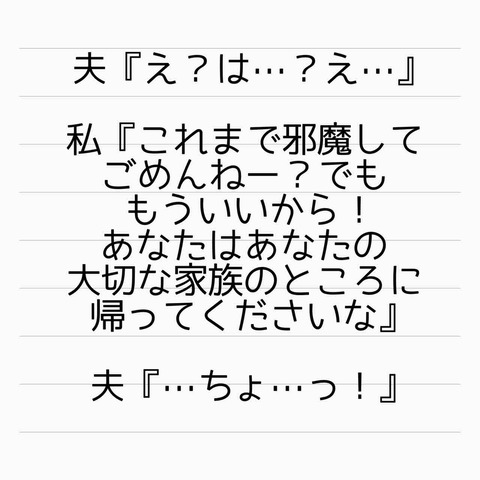 夫『え？は…？え…』
私『これまで邪魔して
ごめんねー？でも
もういいから！
あなたはあなたの
大切な家族のところに
帰ってくださいな』
夫『…ちょ…っ！』